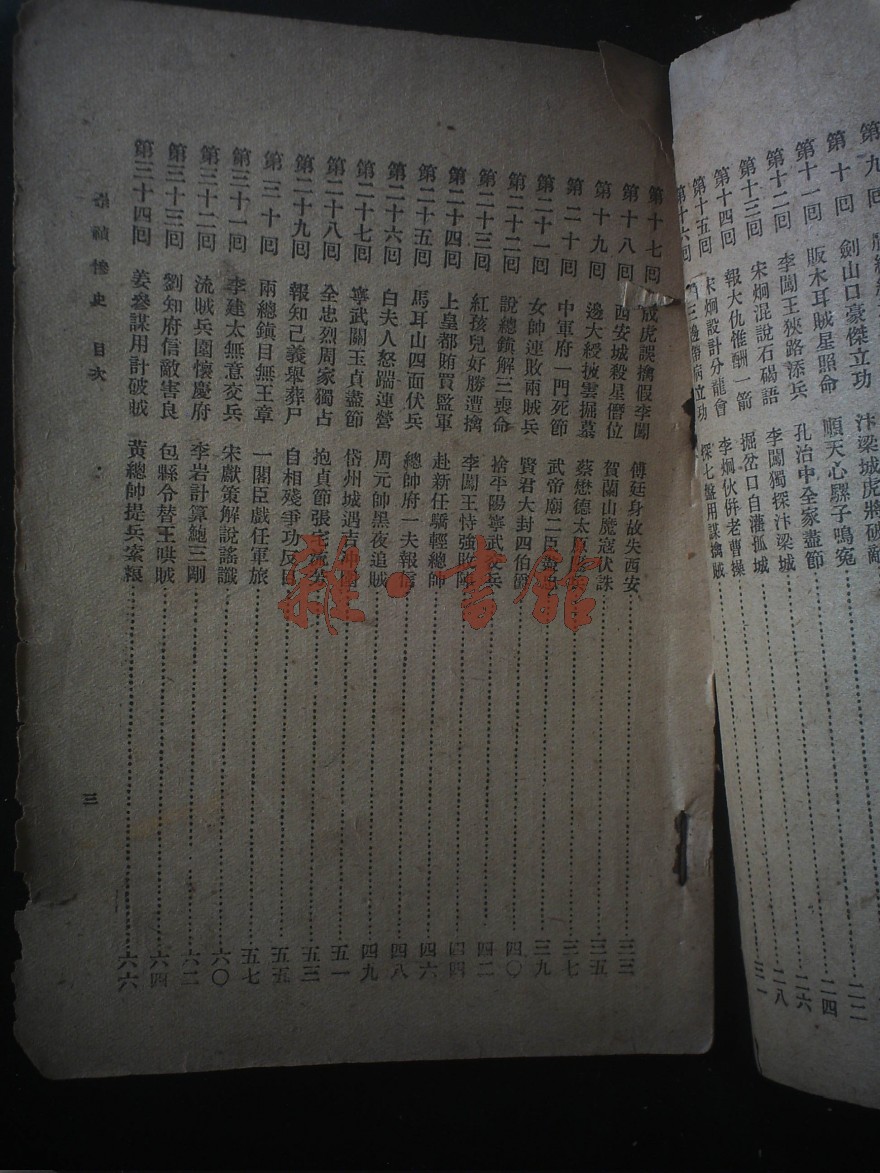 第九回
第十回 劍山口豪傑立功 汴梁城虎將破敵
第十一回 販木耳賊星照命 順天心騾子鳴冤
第十二回 李闖王狹路添兵 孔治中全家盡節
第十三回 宋炯混說石碭語 李闖獨探汴梁城
第十四回 報大仇惟酬一箭 掘岔口自藩孤城
第十五回 宋炯設計分龍會 李炯伙併老曹操
第十六回 三邊帶病立功 探七盤用謀擒賊
二二
二四
二六
二八
三一
第十七回 戚虎誤擒假李闖 傅廷身故失西安 三三
第十八回 西安城殺星僭位 賀蘭山魔寇伏誅 三五
第十九回 邊大綬披雲掘墓 蔡懋德太原 三七
第二十回 中軍府一門死節 武帝廟二臣 三九
第二十一回 女帥連敗兩賊兵 賢君大封四伯爵 四〇
第二十二回 說總鎮解三喪命 捨平陽寧武安兵 四二
第二十三回 紅孩兒好勝遭擒 李闖王恃強敗陣 四四
第二十四回 上皇都賄買監軍 赴新任驕輕總帥 四六
第二十五回 馬耳山四面伏兵 總帥府一夫報信 四八
第二十六回 白夫人怒踹連營 周元帥黑夜追賊 四九
第二十七回 寧武關玉貞盡節 岱州城遇吉 五一
第二十八回 全忠烈周家獨占 抱貞節張宅 五三
第二十九回 報知己義舉葬尸 自相殘爭功反 五五
第三十回 兩總鎮目無王章 一閣臣戲任軍旅 五七
第三十一回 李建太無意変兵 宋獻策解說謠讖 六〇
第三十二回 流賊兵圍懷慶府 李岩計算鮑三剛 六二
第三十三回 劉知府信敵害良 包縣令替王哄賊 六四
第三十四回 姜參謀用計破賊 黃總帥提兵索糧 六六
慘史 目次
三
雜·書館